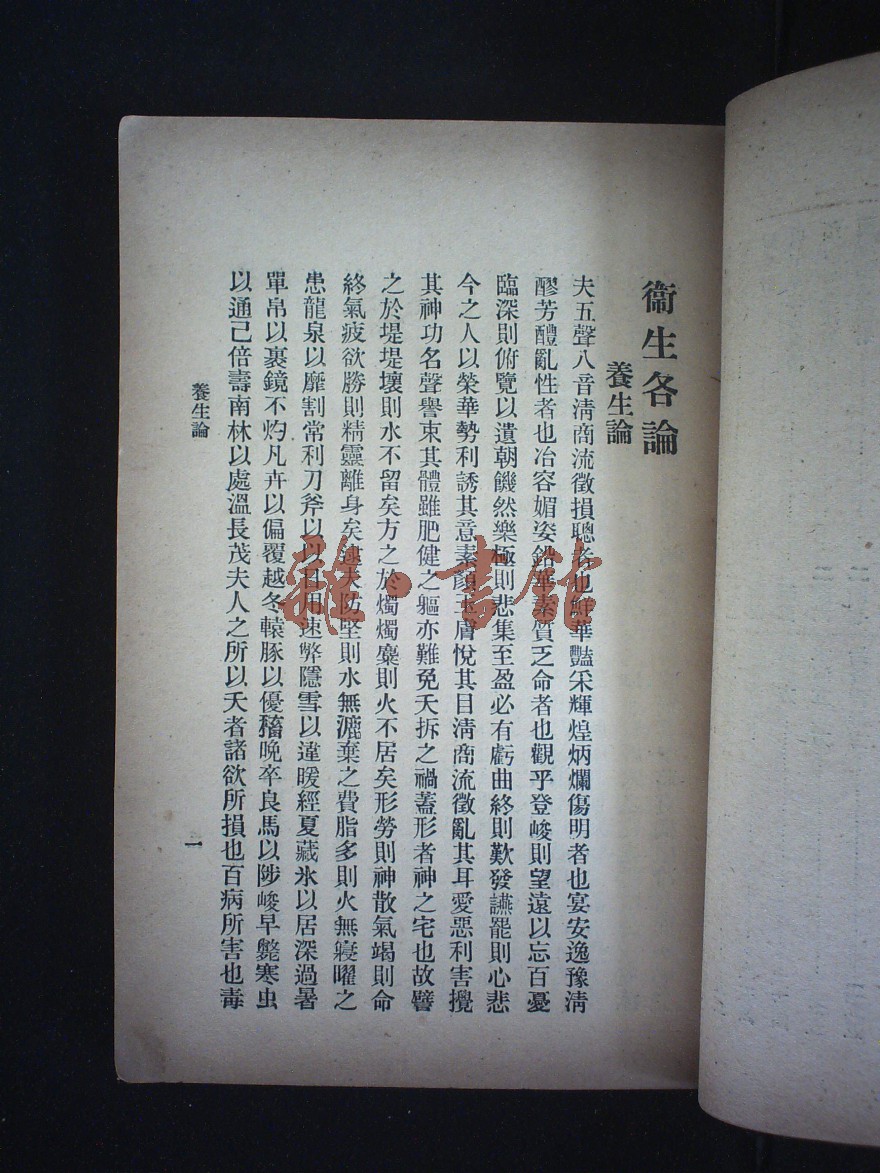 衞生各論
養生論
夫五聲八音淸商流徵損聰者也鮮華豔采輝煌炳爛傷明者也宴安逸豫淸
醪芳醴亂性者也冶容媚姿鉛華素質乏命者也觀乎登峻則望遠以忘百憂
臨深則俯覽以遺朝饑然樂極則悲集至盈必有虧曲終則歎發讌罷則心悲
今之人以榮華勢利誘其意素顏玉膚悅其目淸商流徵亂其耳愛惡利害攪
其神功名聲譽束其體雖肥健之軀亦難免夭拆之禍蓋形者神之宅也故譬
之於堤堤壞則水不留矣方之於燭燭糜則火不居矣形勞則神散氣竭則命
終氣疲欲勝則精靈離身矣逮夫防堅則水無漉棄之費脂多則火無寢曜之
患龍泉以靡割常利刀斧以以日用速弊隱雪以違暖經夏藏氷以居深過暑
單帛以裹鏡不灼凡卉以偏覆越冬轅豚以優豬晚卒良馬以陟峻早斃寒虫
以通己倍壽南林以處溫長茂夫人之所以夭者諸欲所損也百病所害也毒
養生論
一
雜·書館